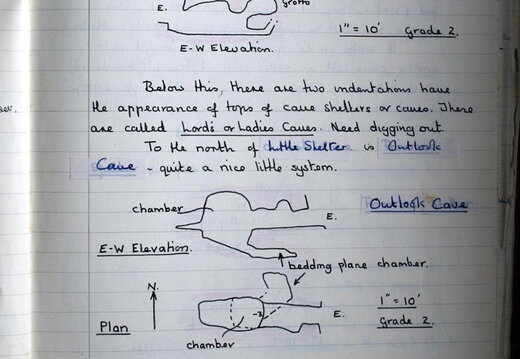 E.
grotto
E-W Elevation.
1" = 10' Grade 2.
Below this, there are two indentations have
the appearance of tops of cave shelters or caves. There
are called Lord's or Ladies Caves. Need digging out.
To the north of Little Shelter is Outlook
Cave - quite a nice little system.
chamber
E.
Outlook Cave
E-W Elevation.
bedding plane chamber.
N.
E.
1" = 10'
Grade 2.
Plan
chamber